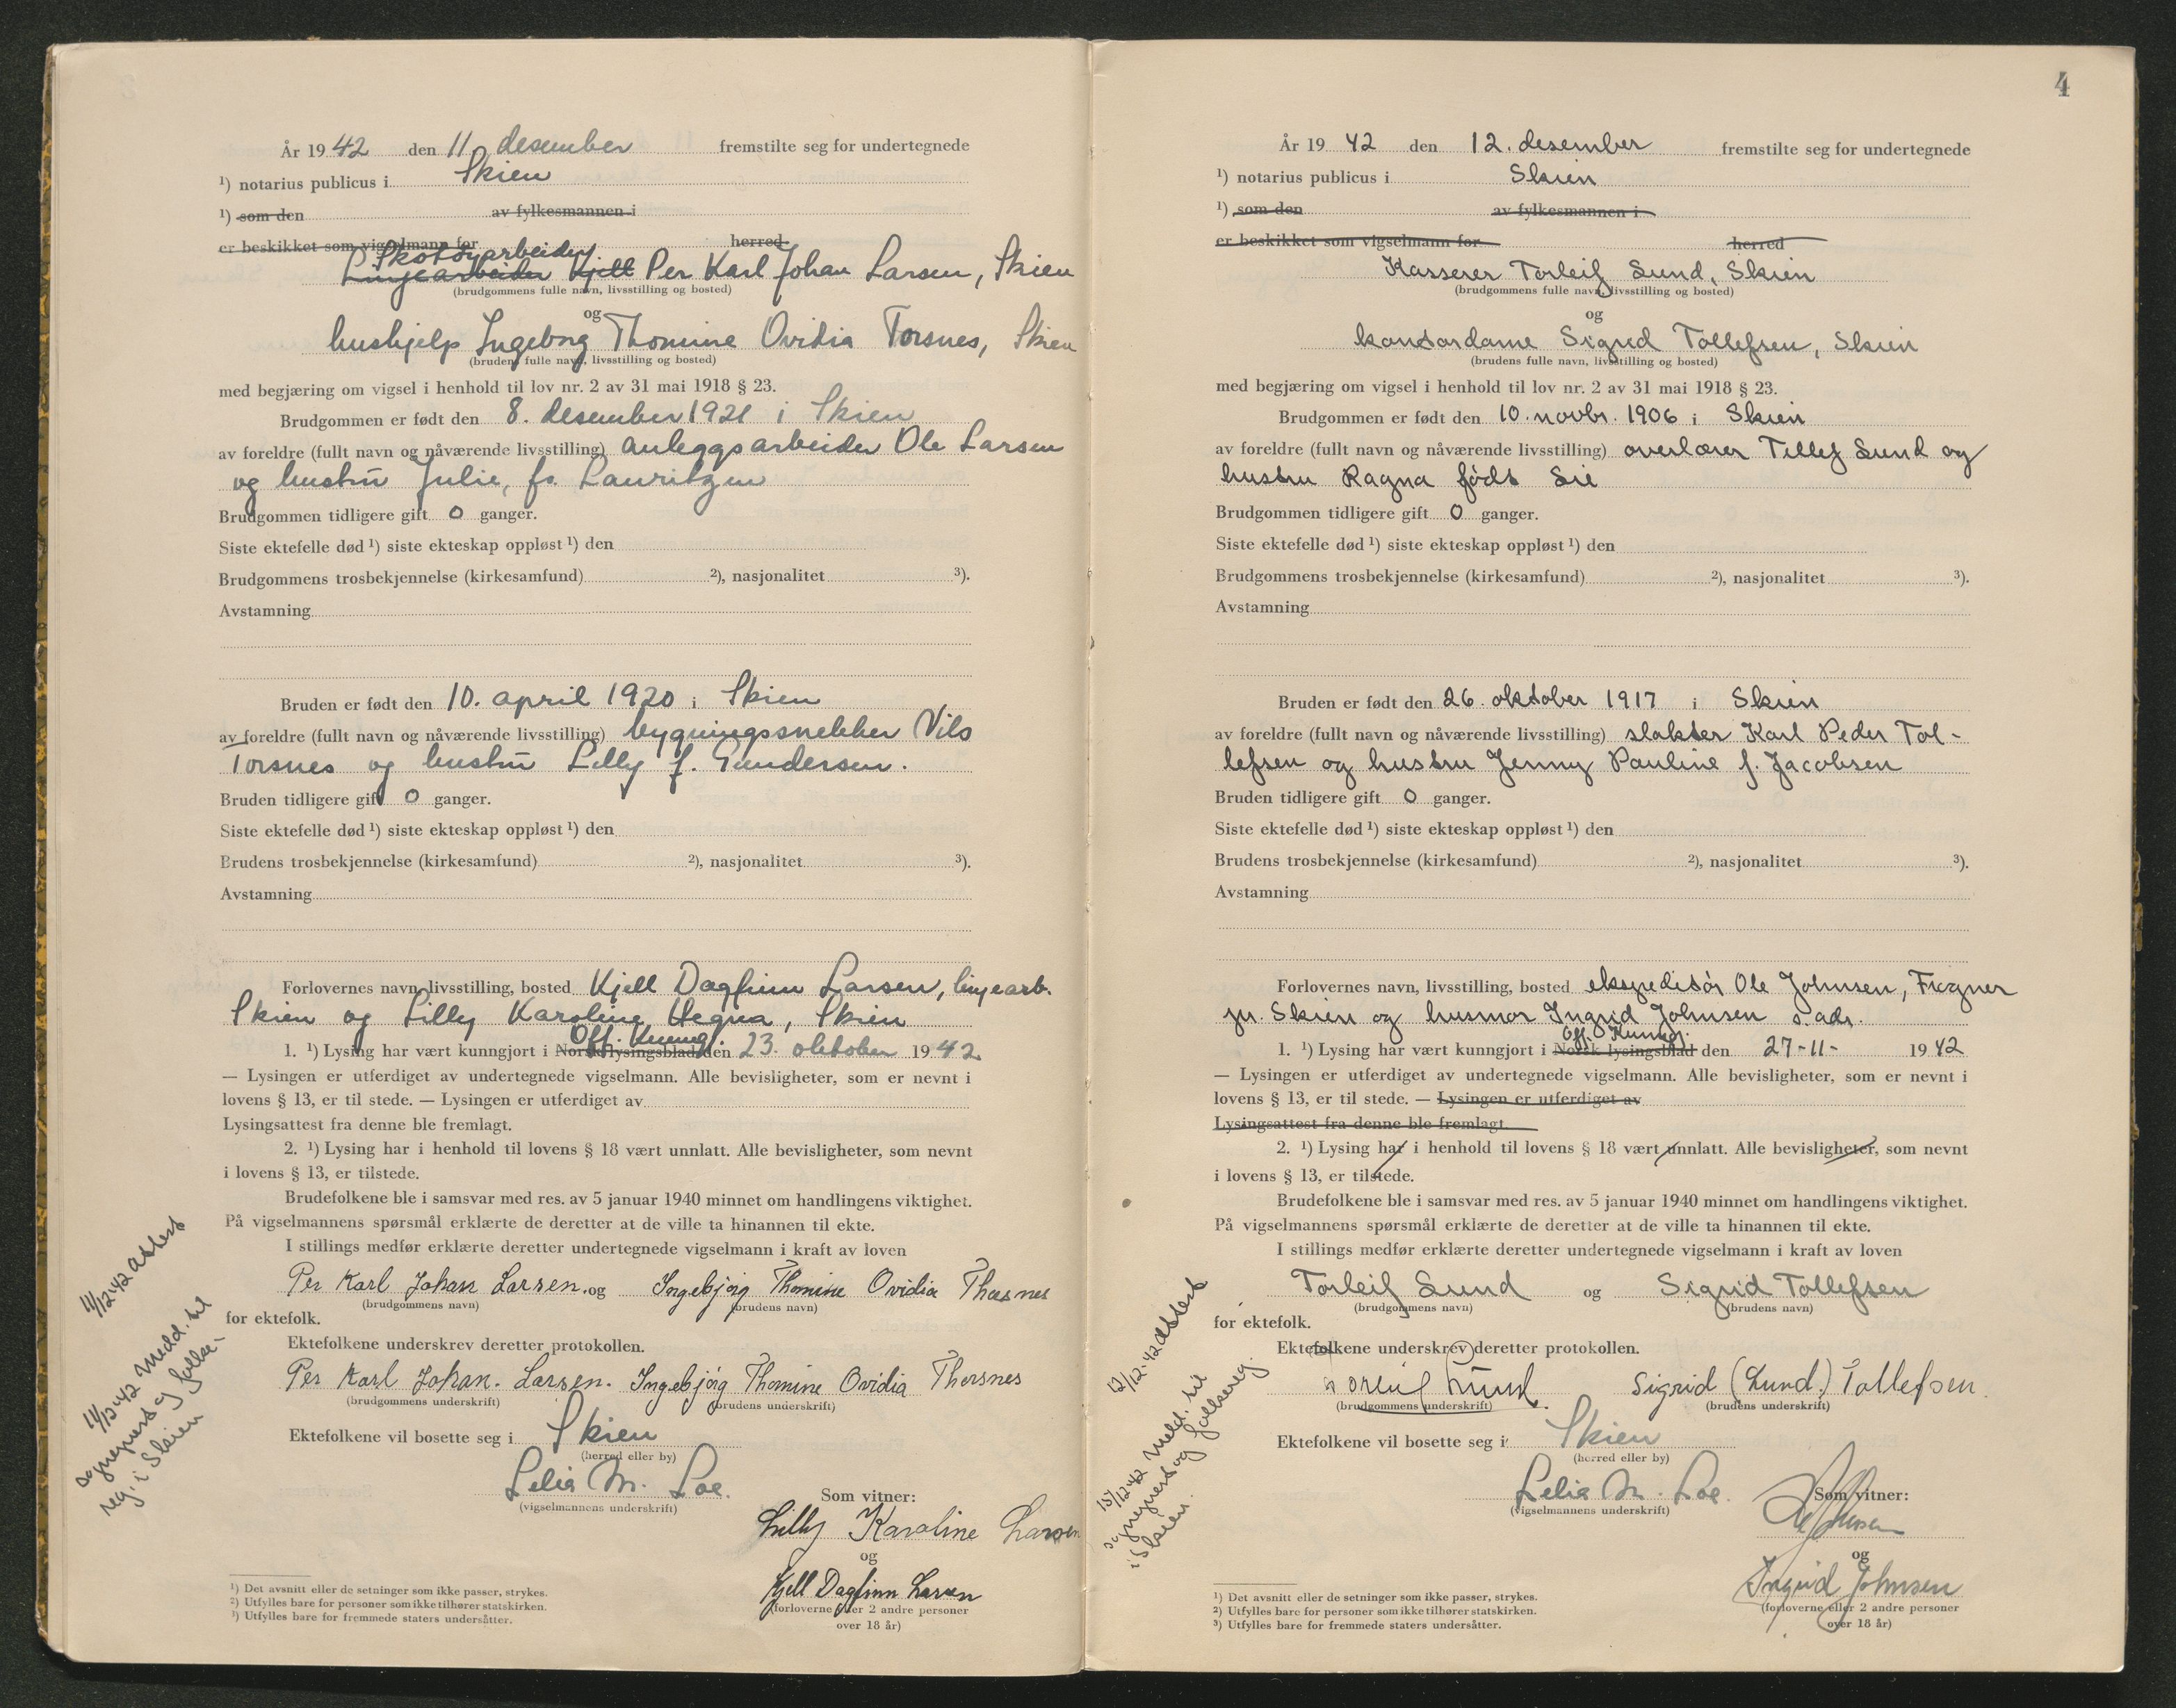 År 1942 den 11 desember fremstilte seg for undertegnede
¹) notarius publicus i Skien
¹) som den av fylkesmannen i
er beskikket som vigselmann for herred
Skotøyarbeider
Linjearbeider Kjell Per Karl Johan Larsen, Skien
(brudgommens fulle navn, livsstilling og bosted)
og
hushjelp Ingeborg Thomine Ovidia Torsnes, Skien
(brudens fulle navn, livsstilling og bosted)
med begjæring om vigsel i henhold til lov nr. 2 av 31 mai 1918 § 23.
Brudgommen er født den 8. desember 1921 i Skien
av foreldre (fullt navn og nåværende livsstilling) anleggsarbeider Ole Larsen
og hustru Julie, f. Lauritzen
Brudgommen tidligere gift 0 ganger.
Siste ektefelle død ¹) siste ekteskap oppløst ¹) den
Brudgommens trosbekjennelse (kirkesamfund) ²), nasjonalitet ³).
Avstamning
Bruden er født den 10. april 1920 i Skien
av foreldre (fullt navn og nåværende livsstilling) bygningssnekker Nils
Torsnes og hustru Lilly f. Gundersen.
Bruden tidligere gift 0 ganger.
Siste ektefelle død ¹) siste ekteskap oppløst ¹) den
Brudens trosbekjennelse (kirkesamfund) ²), nasjonalitet ³).
Avstamning
Forlovernes navn, livsstilling, bosted Kjell Dagfinn Larsen, linjearb.
Skien og Lilly Karoline Hegna, Skien
Off. Kunng.
1. ¹) Lysing har vært kunngjort i Norsk lysingsblad den 23. oktober 1942
— Lysingen er utferdiget av undertegnede vigselmann. Alle bevisligheter, som er nevnt i
lovens § 13, er til stede. — Lysingen er utferdiget av
Lysingsattest fra denne ble fremlagt.
2. ¹) Lysing har i henhold til lovens § 18 vært unnlatt. Alle bevisligheter, som nevnt
i lovens § 13, er tilstede.
Brudefolkene ble i samsvar med res. av 5 januar 1940 minnet om handlingens viktighet.
På vigselmannens spørsmål erklærte de deretter at de ville ta hinannen til ekte.
I stillings medfør erklærte deretter undertegnede vigselmann i kraft av loven
Per Karl Johan Larsen. og Ingebjørg Thomine Ovidia Thorsnes
(brudgommens navn) (brudens navn)
for ektefolk.
Ektefolkene underskrev deretter protokollen.
Per Karl Johan. Larsen. Ingebjørg Thomine Ovidia Thorsnes
(brudgommens underskrift) (brudens underskrift)
Ektefolkene vil bosette seg i Skien
(herred eller by)
Lelia M. Loe.
(vigselmannens underskrift)
Som vitner:
Lilly Karoline Larsen
og
Kjell Dagfinn Larsen
(forloverne eller 2 andre personer
over 18 år)
11/12-42 attest
11/12-42 Medd. til
sogneprest og folke-
reg. i Skien
¹) Det avsnitt eller de setninger som ikke passer, strykes.
²) Utfylles bare for personer som ikke tilhører statskirken.
³) Utfylles bare for fremmede staters undersåtter.
4
År 1942 den 12. desember fremstilte seg for undertegnede
¹) notarius publicus i Skien
¹) som den av fylkesmannen i
er beskikket som vigselmann for herred
Kasserer Torleif Sund, Skien
(brudgommens fulle navn, livsstilling og bosted)
og
kontordame Sigrid Tollefsen, Skien
(brudens fulle navn, livsstilling og bosted)
med begjæring om vigsel i henhold til lov nr. 2 av 31 mai 1918 § 23.
Brudgommen er født den 10. novbr. 1906 i Skien
av foreldre (fullt navn og nåværende livsstilling) overlærer Tellef Sund og
hustru Ragna født Sie
Brudgommen tidligere gift 0 ganger.
Siste ektefelle død ¹) siste ekteskap oppløst ¹) den
Brudgommens trosbekjennelse (kirkesamfund) ²), nasjonalitet ³).
Avstamning
Bruden er født den 26. oktober 1917 i Skien
av foreldre (fullt navn og nåværende livsstilling) slakter Karl Peder Tol-
lefsen og hustru Jenny Pauline f. Jacobsen
Bruden tidligere gift 0 ganger.
Siste ektefelle død ¹) siste ekteskap oppløst ¹) den
Brudens trosbekjennelse (kirkesamfund) ²), nasjonalitet ³).
Avstamning
Forlovernes navn, livsstilling, bosted ekspeditør Ole Johnsen, Frogner
pr. Skien og husmor Ingrid Johnsen s. adr.
Off. Kunngj.
1. ¹) Lysing har vært kunngjort i Norsk lysingsblad den 27-11- 1942
— Lysingen er utferdiget av undertegnede vigselmann. Alle bevisligheter, som er nevnt i
lovens § 13, er til stede. — Lysingen er utferdiget av
Lysingsattest fra denne ble fremlagt.
2. ¹) Lysing har i henhold til lovens § 18 vært unnlatt. Alle bevisligheter, som nevnt
i lovens § 13, er tilstede.
Brudefolkene ble i samsvar med res. av 5 januar 1940 minnet om handlingens viktighet.
På vigselmannens spørsmål erklærte de deretter at de ville ta hinannen til ekte.
I stillings medfør erklærte deretter undertegnede vigselmann i kraft av loven
Torleif Sund og Sigrid Tollefsen
(brudgommens navn) (brudens navn)
for ektefolk.
Ektefolkene underskrev deretter protokollen.
Torleif Sund. Sigrid (Lund.) Tollefsen.
(brudgommens underskrift) (brudens underskrift)
Ektefolkene vil bosette seg i Skien
(herred eller by)
Lelia M. Loe.
(vigselmannens underskrift)
Som vitner:
og
Ingrid Johnsen
(forloverne eller 2 andre personer
over 18 år)
12/12-42 attest
15/12-42 Meld. til
sogneprest og folkereg.
i Skien.
¹) Det avsnitt eller de setninger som ikke passer, strykes.
²) Utfylles bare for personer som ikke tilhører statskirken.
³) Utfylles bare for fremmede staters undersåtter.